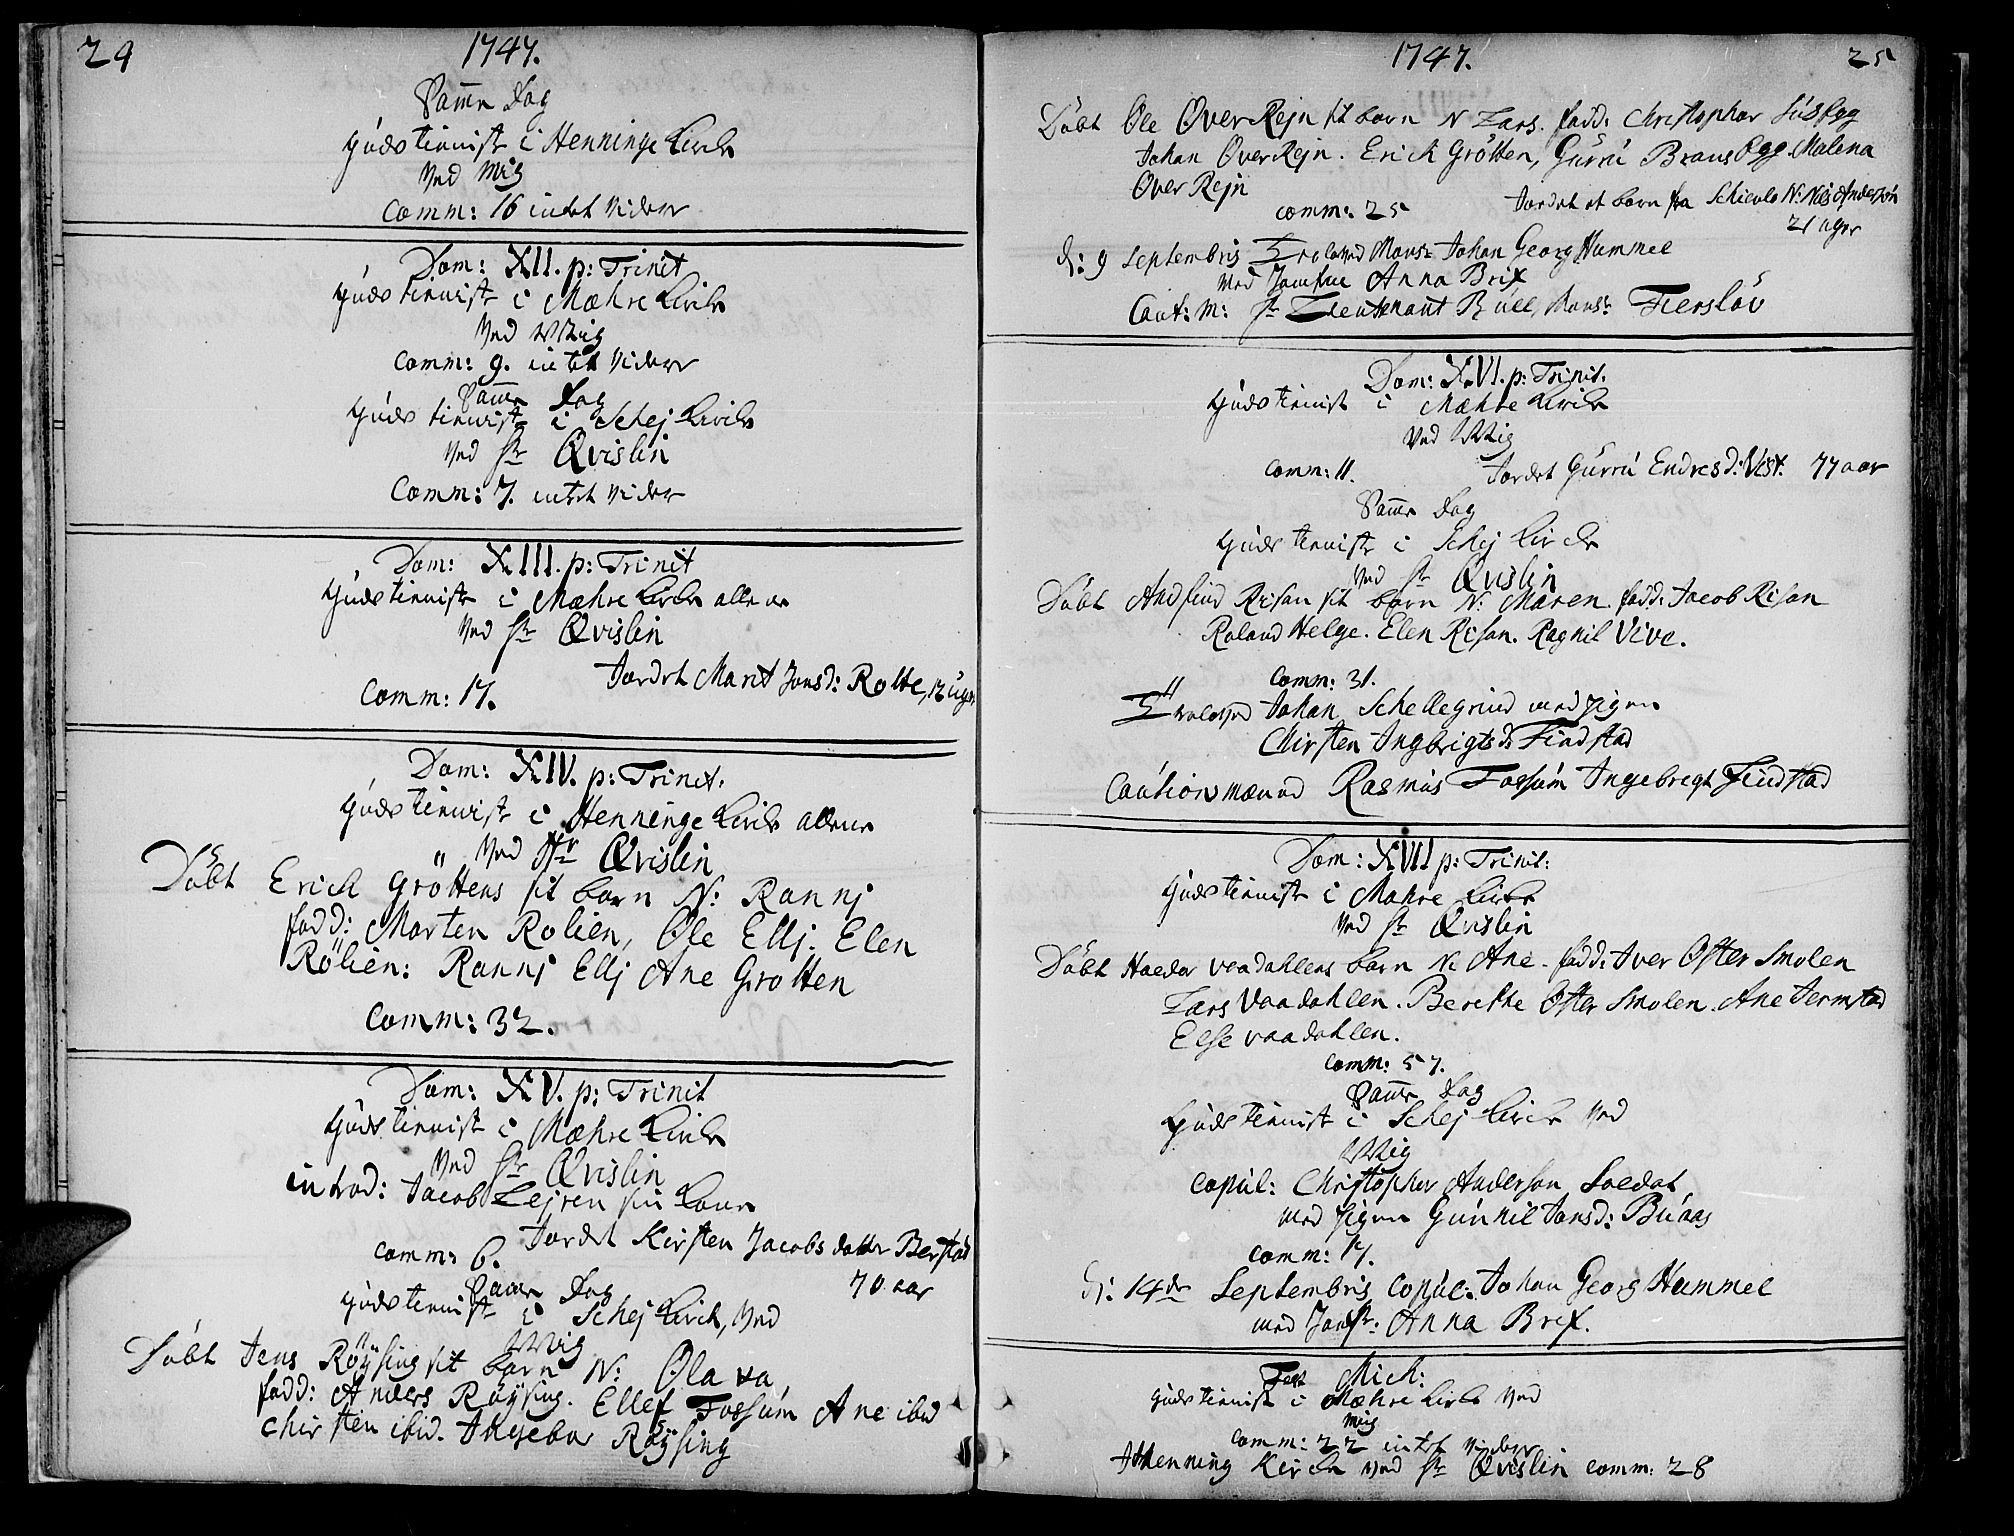 24
1747.
Samme Dag
Gudstienist i Henninge Kircke
Ved Mig
Comm: 16 intet videre
Dom: XII. p: Trinit
Gudstienist i Mæhre Kircke
Ved Mig
Comm: 9. intet videre
Samme Dag
Gudstienist i Schej Kircke
Ved Hr Qvislin
Comm: 7. intet vider
Dom: XIII. p: Trinit
Gudstienist i Mæhre Kircke allene
Ved Hr Qvislin
Jordet Marit Jonsd: Rolte, 12 uger
Comm: 17.
Dom: XIV. p: Trinit.
Gudstienist i Henninge Kircke allene
Ved Hr Qvislin
Döbt Erick Gröttens sit barn N: Rannj
fadd: Morten Rolien, Ole Ellj. Elen
Rölien: Rannj Ellj Ane Grotten
Comm: 32.
Dom: XV. p: Trinit
Gudstienist i Mæhre Kircke
Ved Hr Qvislin
introd: Jacob Lejren sin Kone
Jordet Kirsten Jacobs datter Berstad
70 aar
Comm: 6.
Samme Dag
Gudstienist i Schej Kirck, Ved
Mig
Döbt Jens Röÿsing sit barn N: Olava
fadd: Anders Röÿsing. Ellef Fossum Ane ibid
Chirsten ibid. Ingebor Röÿsing
1747.
25
Döbt Ole Over Rejn sit barn N Lars. fadd: Christopher
Johan Over Rejn. Erick Grötten, Gurru Malena
Over Rejn
comm: 25
Jordet et barn fra N: Nils Anderssön
21 uger
d: 9 Septembris Troloved Mons: Johan Georg Hummel
Med Jomfrue Anna Brix
Caut: M: Hr Lieutenant Bull, Mons: Fiersløv
Dom: XVI. p: Trinit.
Gudstienist i Mæhre Kircke
Ved Mig
comm: 11.
Jordet Gurru Endresd: Vist. 77 aar
Samme Dag
Gudstienist i Schej Kircke
Ved Hr Qvislin
Döbt Andfind Risan sit barn N: Maren. fadd: Jacob Risan
Roland Helge. Elen Risan. Ragnil Vive.
Comm: 31.
Trolovd Johan Schellegrind med pigen
Chirsten Ingbrigtsd: Findstad
Cautionsmænd Rasmus Fossum Ingebregt Findstad
Dom: XVII p: Trinit:
Gudstienist i Mahre Kircke
Ved Hr Qvislin
Döbt Haldor Vaadahlens barn N: Ane. fadd: Iver Öster Smolen
Lars Vaadahlen. Berethe Öster Smolen. Ane Jermstad
Else Vaadahlen.
Comm: 57.
Samme Dag
Gudstienist i Schej Kirck Ved
Mig
Copul: Christopher Anderson Soldat
med pigen Gunnil Jonsd: Bunas
Comm: 17.
d: 14de Septembris Copul: Johan Georg Hummel
med Jomfr: Anna Brix.
Fest Mich:
Gudstienist i Mæhre Kircke Ved
Mig
Comm: 22 intet videre
I Henning Kircke Ved Hr Qvislin comm: 28